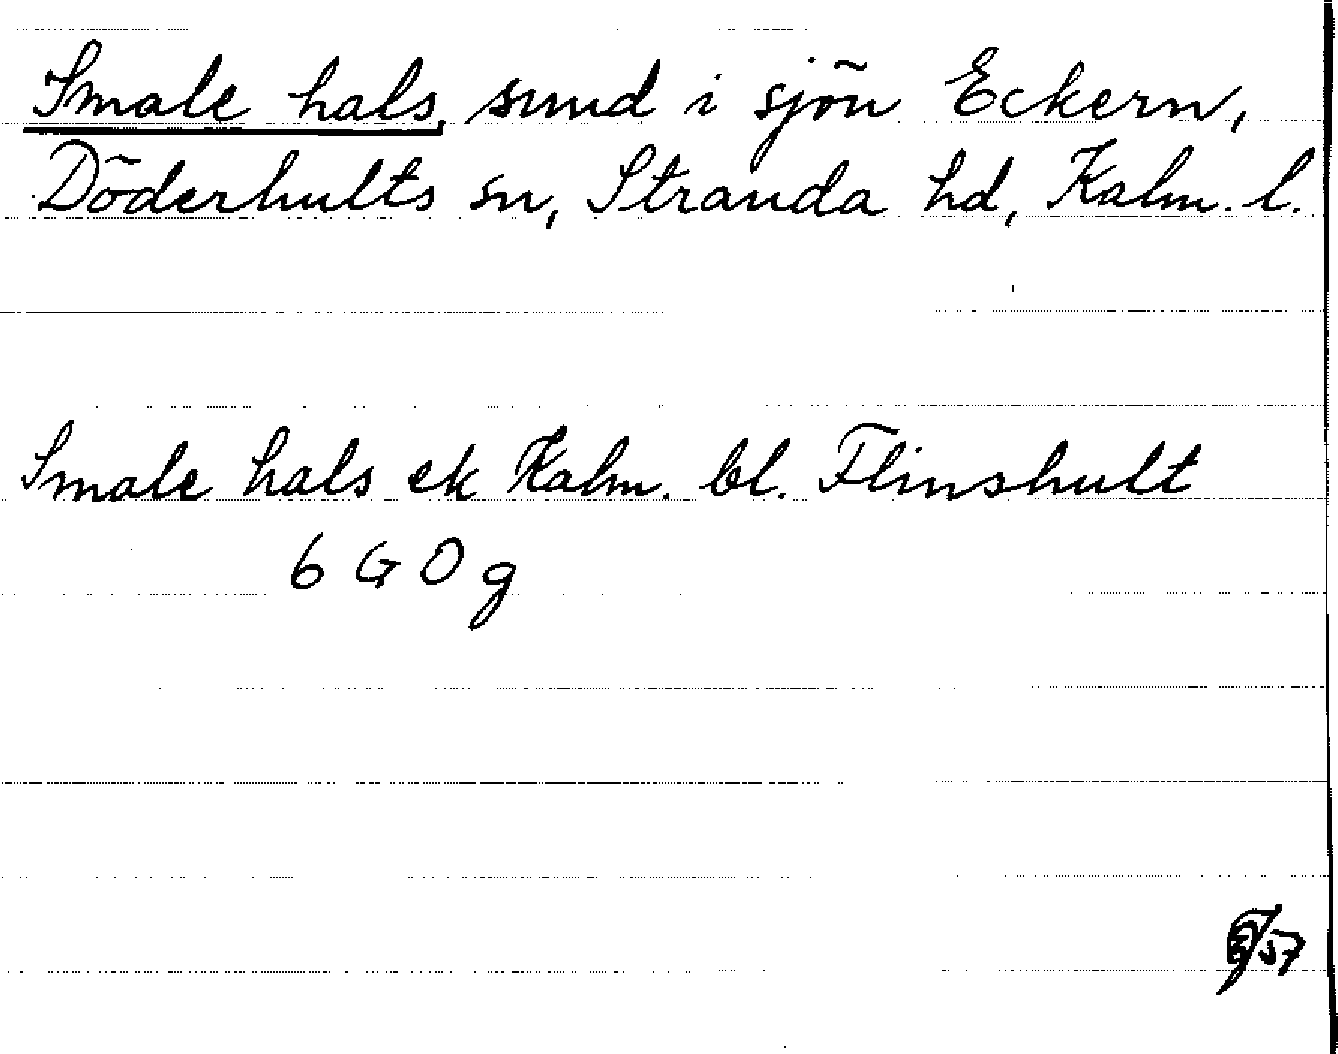 Smale hals, sund i sjön Eckern,
Döderhults sn, Stranda hd, Kalm. l.
Smale hals ek Kalm. bl. Flinshult
6 G O g
/57